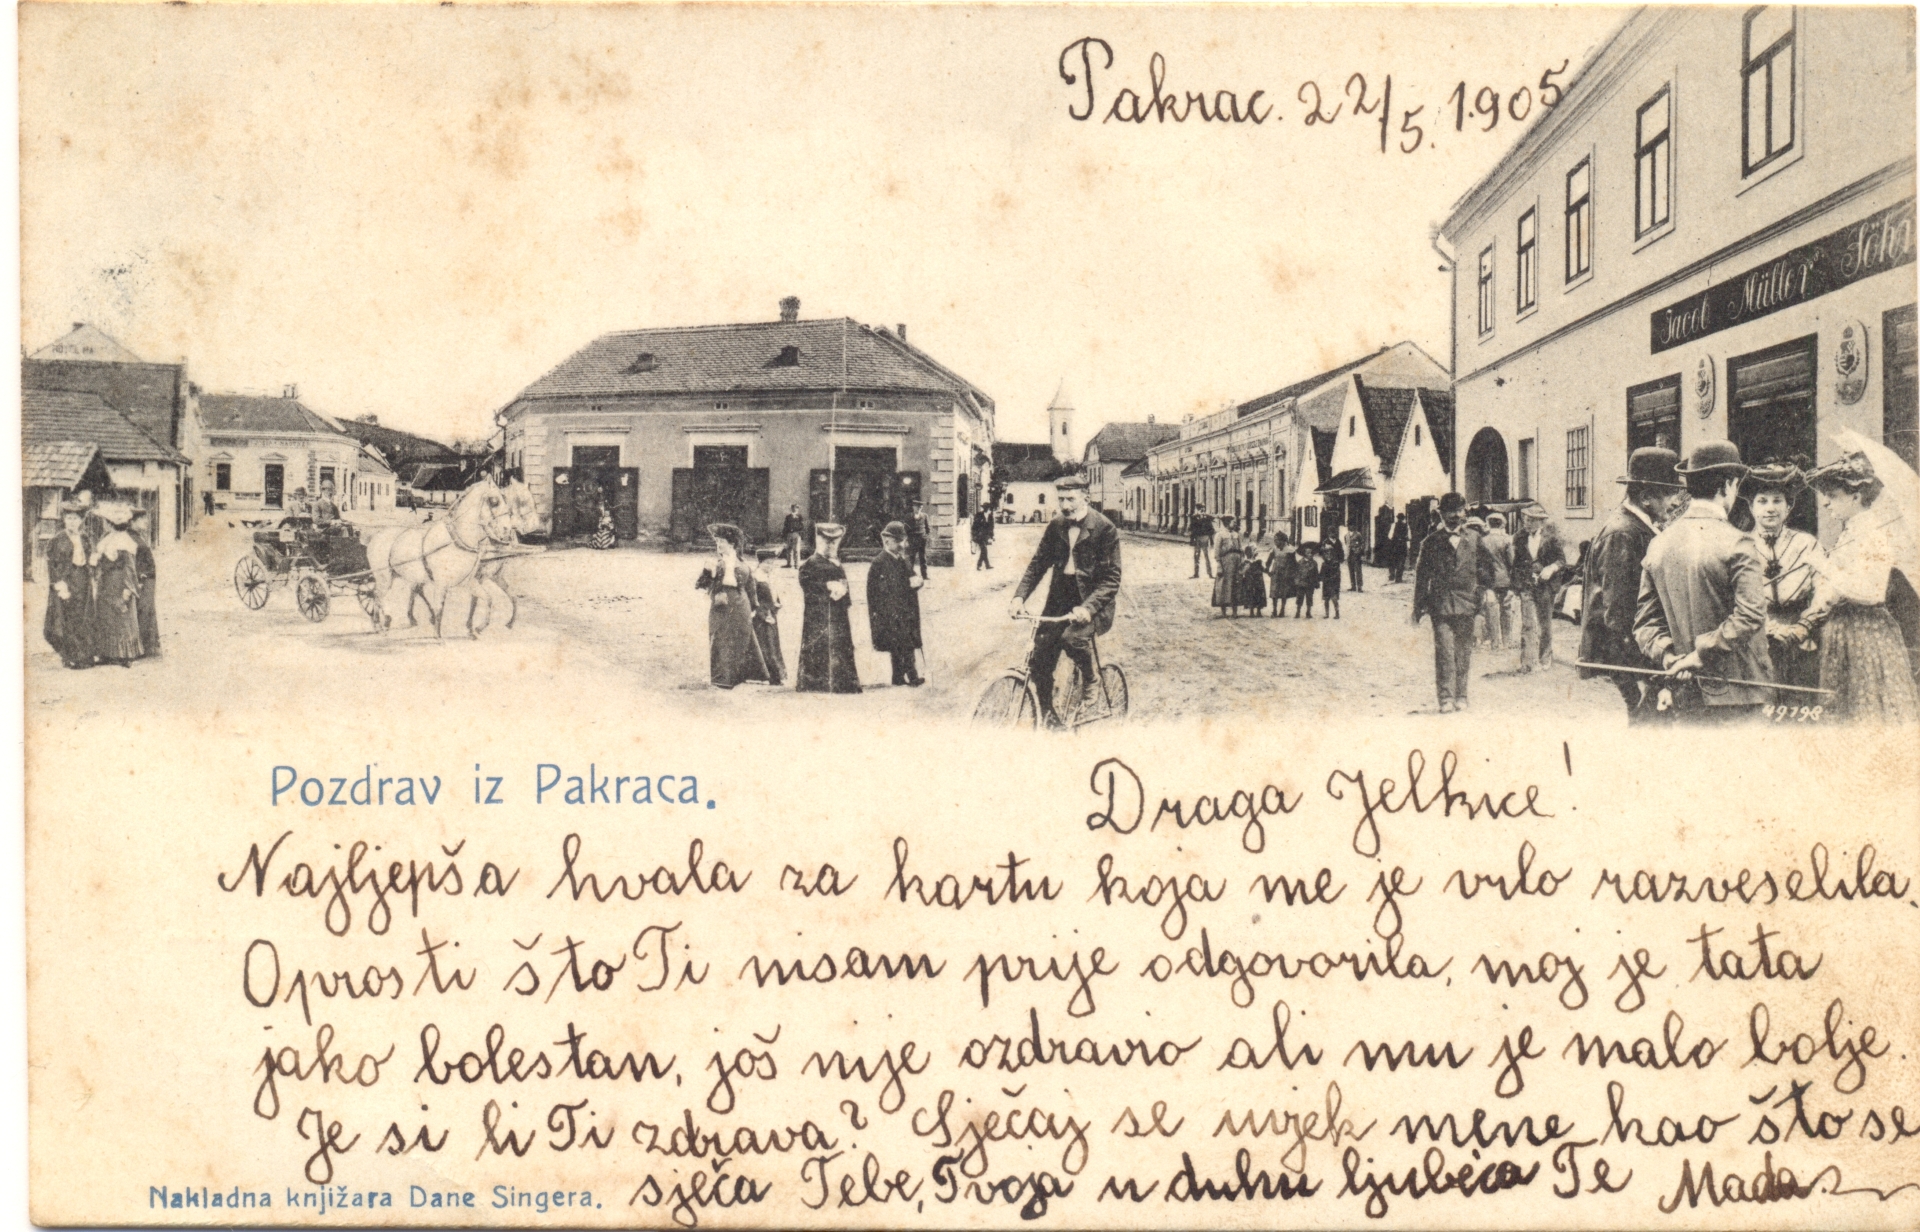 Pakrac. 22/5. 1905
Jacob Müller Söh
49198
Pozdrav iz Pakraca.
Draga Jelkice!
Najljepša hvala za kartu koja me je vrlo razveselila.
Oprosti što Ti nisam prije odgovorila, moj je tata
jako bolestan, još nije ozdravio ali mu je malo bolje.
Je si li Ti zdrava? Sječaj se uvjek mene kao što se
sječa Tebe, Tvoja u duhu ljubeća Te Mada.
Nakladna knjižara Dane Singera.